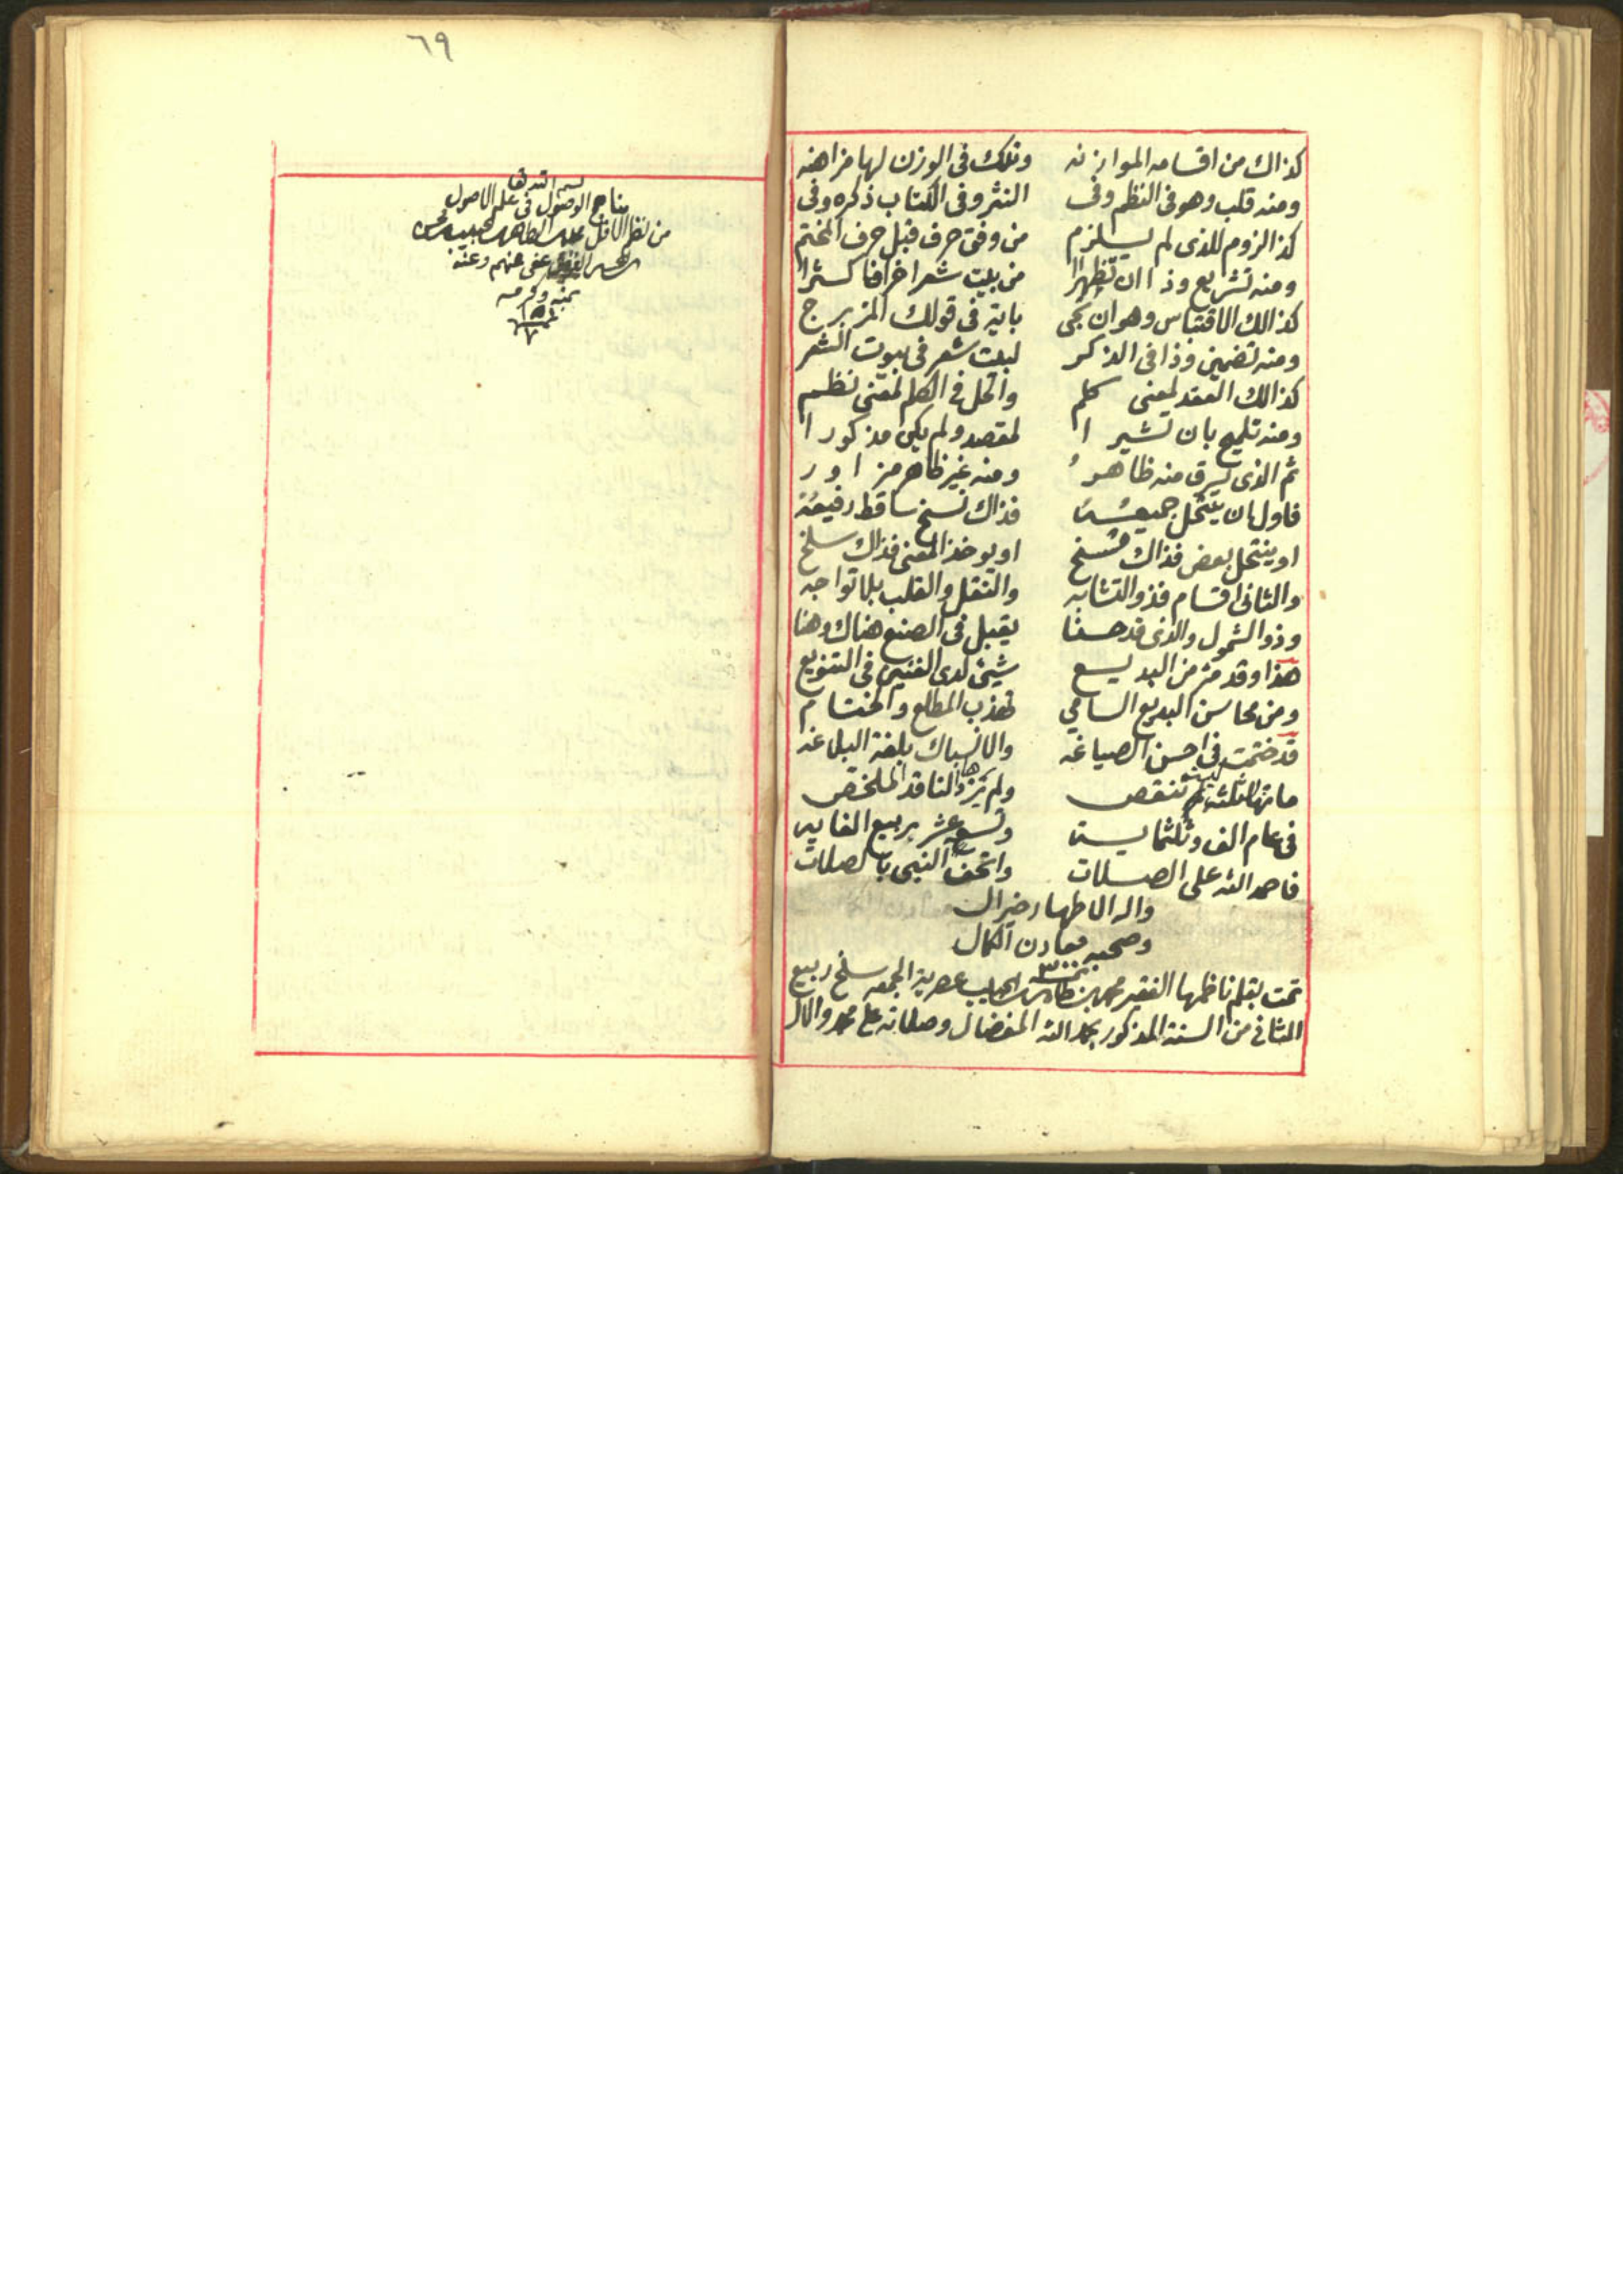 كذاك من اقسامه الموازنه وتلك فى الوزن لها مزاهنه
ومنه قلب وهو فى النظم وفى النثر وفى الكتاب ذكره وفى
كذا لزوم للذى لم يلزم من وفق حرف قبل حرف المختم
ومنه تشريع وذا ان تظهرا من بيت شعر اخرا فاكثرا
كذالك الاقتباس وهو ان تجى باية فى قولك المزبرج
ومنه تضمين وذا فى الذكر لبيت شعر فى بيوت الشعر
كذالك العقد لمعنى كلم والحل فى الكلم لمعنى نظم
ومنه تلميح بان تشيرا لمقصد ولم يكن مذكورا
ثم الذى يسرق منه ظاهر ومنه غير ظاهر
فاول ان ينتحل جميعه فذاك نسخ ساقط رفيعه
او ينتحل بعض فذاك مسخ او يوخذ المعنى فذاك سلخ
والثانى اقسام فذو التشابه والنقل والقلب بلا تواجه
وذو الشمول والذى قد حسنا يقبل فى الصنع هناك وهنا
هذا وقد من البديع شيئ لدى الفنين فى التنويع
ومن محاسن البديع السامي تهذب المطلع والختام
قد ختمت فى احسن الصياغه والانسباك بلغة البلاغه
ماتها ثلثه لم تنقص ولم يزدها الناقد الملخص
فى عام الف وثلثماية وتسع عشر بربيع الغاية
فاحمد الله على الصلات واتحف النبى بالصلات
واله الاطهار خير ال
وصحبه معادن الكمال
تمت بقلم ناظمها الفقير محمد بن عصرية الجمعه سلخ ربيع
الثانى من السنة المذكور بحمد الله المفضال وصلاته على محمد والال
٦٩
بسم الله تعا
مناهج الوصول فى علم الاصول
من نظم الاقل
عفى عنهم وعنه
بمنه وكرمه